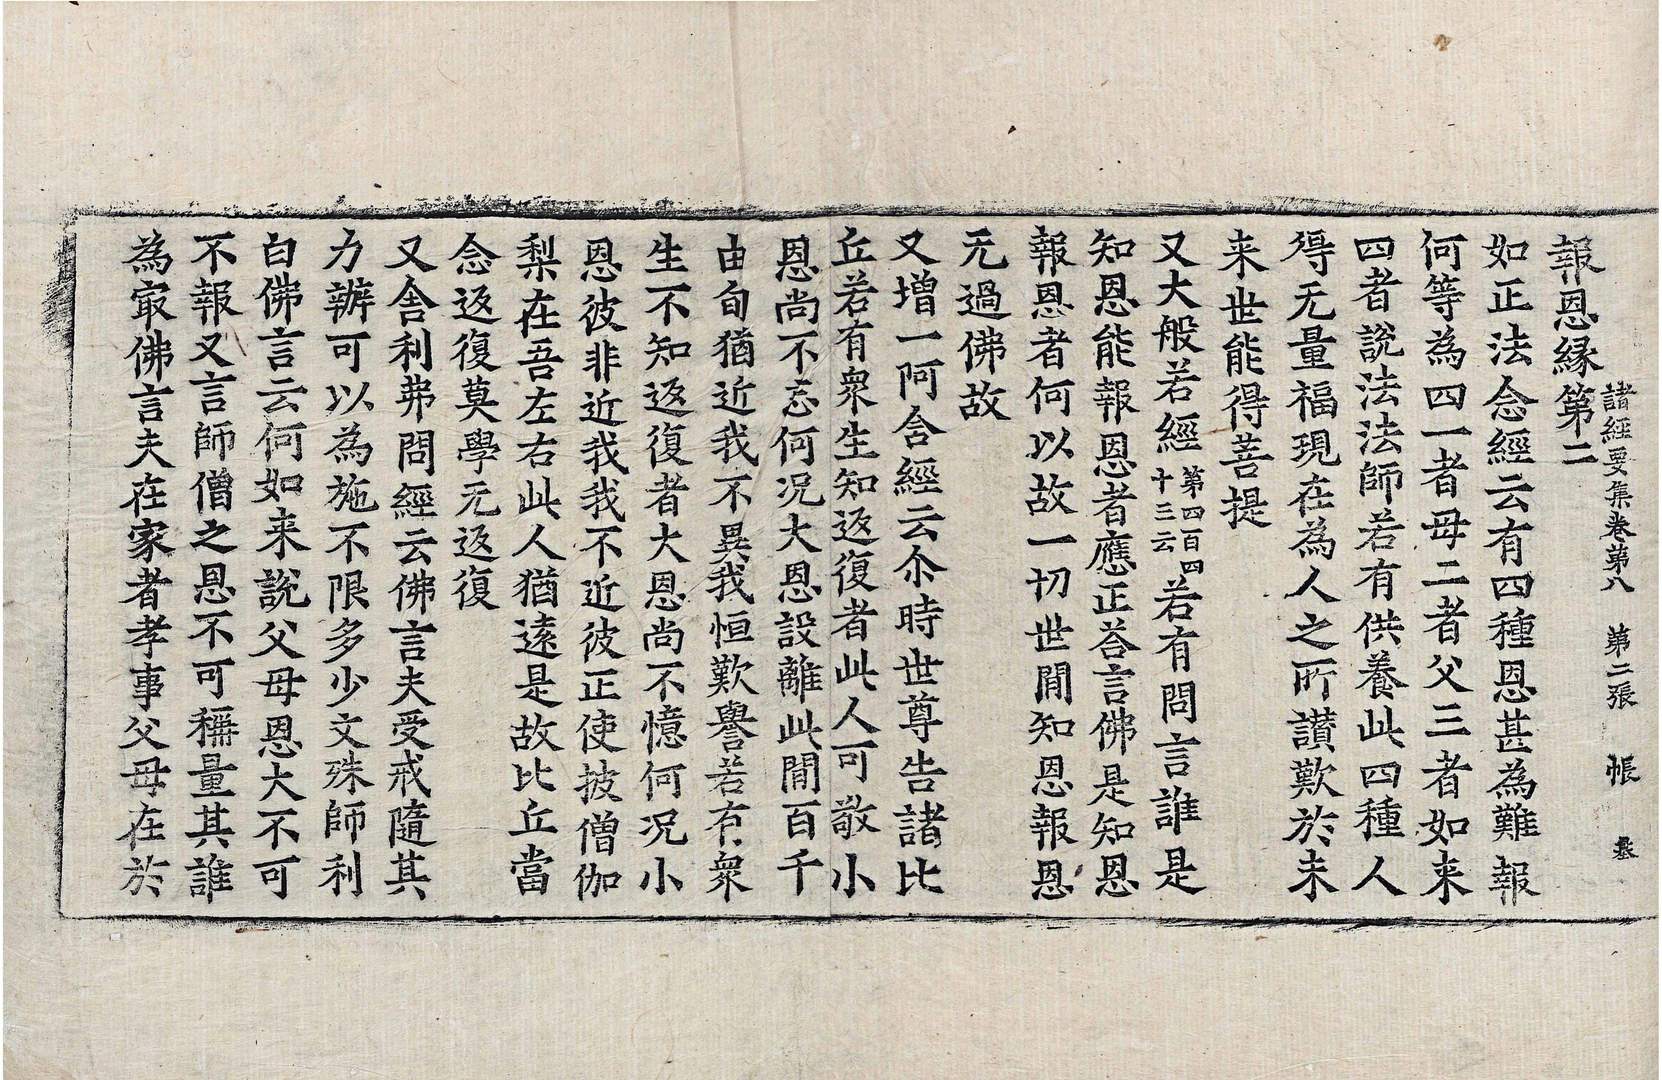 諸經要集卷第八　第二張　帳
報恩縁第二
如正法念經云有四種恩甚為難報
何等為四一者母二者父三者如来
四者說法法師若有供養此四種人
得无量福現在為人之所讃歎於未
来世能得菩提
又大般若經第四百四十三云若有問言誰是
知恩能報恩者應正荅言佛是知恩
報恩者何以故一切世間知恩報恩
无過佛故
又增一阿含經云尒時世尊告諸比
丘若有衆生知返復者此人可敬小
恩尚不忘何况大恩設離此間百千
由旬猶近我不異我恒歎譽若有衆
生不知返復者大恩尚不憶何况小
恩彼非近我我不近彼正使披僧伽
梨在吾左右此人猶遠是故比丘當
念返復莫學无返復
又舍利弗問經云佛言夫受戒隨其
力辦可以為施不限多少文殊師利
白佛言云何如来說父母恩大不可
不報又言師僧之恩不可稱量其誰
為㝡佛言夫在家者孝事父母在於